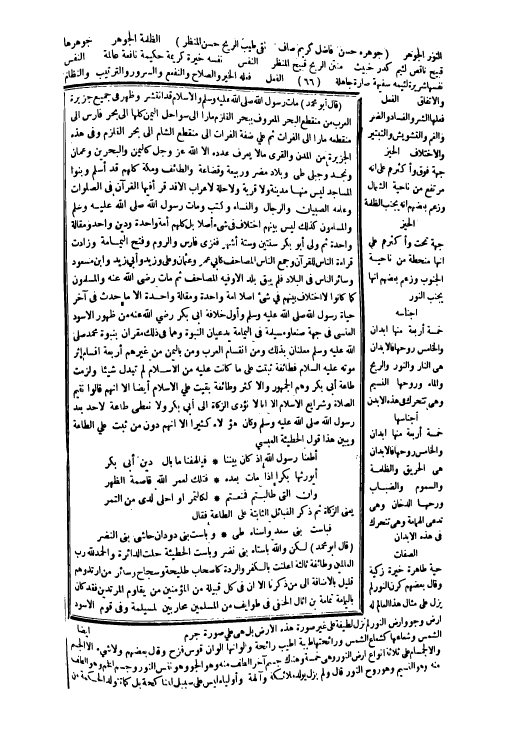 النور الجوهر (جوهره حسن فاضل كريم صاف نقى طيب الريح حسن المنظر) الظلمة الجوهر جوهرها
قبيح ناقص لئيم كدر خبيث منتن الريح قبيح المنظر النفس نفسه خيرة كريمة حكيمة نافعة عالمة النفس
نفسها شريرة لئيمة سفيهة ضارة جاهلة (٦٦) الفعل فعله الخير والصلاح والنفع والسرور والترتيب والنظام
والاتفاق الفعل
فعلها الشر والفساد والضر
والغم والتشويش والتبتير
والاختلاف الحيز
جهة فوق وأكثرهم على انه
مرتفع من ناحية الشمال
وزعم بعضهم انه بجنب الظلمة
الحيز
جهة تحت وأكثرهم على
انها منحطة من ناحية
الجنوب وزعم بعضهم انها
بجنب النور
اجناسه
خمسة أربعة منها ابدان
والخامس روحها فالابدان
هى النار والنور والريح
والماء وروحها النسيم
وهى تتحرك فى هذه الابدان
أجناسها
خمسة أربعة منها ابدان
والخامس روحها فالابدان
هى الحريق والظلمة
والسموم والضباب
وروحها الدخان وهى
تدعى الهمامة وهى تتحرك
فى هذه الابدان
الصفات
حية طاهرة خيرة زكية
وقال بعضهم كون النور لم
يزل على مثال هذا العالم له
(قال أبو محمد) مات رسول الله صلى الله عليه وسلم والاسلام قد انتشر وظهر فى جميع جزيرة
العرب من منقطع البحر المعروف ببحر القلزم مارا الى سواحل اليمن كلها الى بحر فارس الى
منقطعه مارا الى الفرات ثم على ضفة الفرات الى منقطع الشام الى بحر القلزم وفى هذه
الجزيرة من المدن والقرى مالا يعرف عدده الا الله عز وجل كاليمن والبحرين وعمان
ونجد وجبلى طى وبلاد مضر وربيعة وقضاعة والطائف ومكة كلهم قد أسلم وبنوا
المساجد ليس منها مدينة ولا قرية ولا حلة لاعراب الا قد قرأ فيها القرآن فى الصلوات
وعلمه الصبيان والرجال والنساء وكتب ومات رسول الله صلى الله عليه وسلم
والمسلمون كذلك ليس بينهم اختلاف فى شىء أصلا بل كلهم أمة واحدة ودين واحد ومقالة
واحدة ثم ولى أبو بكر سنتين وستة أشهر فغزى فارس والروم وفتح اليمامة وزادت
قراءة الناس للقرآن وجمع الناس المصاحف كأبى عمر وعثمان وعلى وزيد وأبى زيد وابن مسعود
وسائر الناس فى البلاد فلم يبق بلد الا وفيه المصاحف ثم مات رضى الله عنه والمسلمون
كما كانوا لا اختلاف بينهم فى شىء اصلا امة واحدة ومقالة واحدة الا ما حدث فى آخر
حياة رسول الله صلى الله عليه وسلم وأول خلافة ابى بكر رضى الله عنه من ظهور الاسود
العنسى فى جهة صنعاء ومسيلمة فى اليمامة يدعيان النبوة وهما فى ذلك مقران بنبوة محمد صلى
الله عليه وسلم معلنان بذلك ومن انقسام العرب ومن باليمن من غيرهم أربعة اقسام إثر
موته عليه السلام فطائفة ثبتت على ما كانت عليه من الاسلام لم تبدل شيئا ولزمت
طاعة أبى بكر وهم الجمهور والاكثر وطائفة بقيت على الاسلام أيضا الا انهم قالوا نقيم
الصلاة وشرايع الاسلام الا انا لا نؤدى الزكاة الى أبى بكر ولا نعطى طاعة لاحد بعد
رسول الله صلى الله عليه وسلم وكان هؤلاء كثيرا الا انهم دون من ثبت على الطاعة
ويبين هذا قول الحطيئة العبسى
أطعنا رسول الله إذ كان بيننا * فيا لهفنا ما بال دين أبى بكر
أيورثها بكرا إذا مات بعده * فتلك لعمر الله قاصمة الظهر
وان التى طالبتم فمنعتم * لكالتمر او احلى لدى من التمر
يعنى الزكاة ثم ذكر القبائل الثابتة على الطاعة فقال
فباست بنى سعد واستاه طى * وباست بنى دودان حاشى بنى النضر
(قال ابو محمد) لكن والله باستاه بنى نضر وباست الحطيئة حلت الدائرة والحمد لله رب
العالمين وطائفة ثالثة اعلنت بالكفر والردة كأصحاب طليحة وسجاح وسائر من ارتد وهم
قليل بالاضافة الى من ذكرنا الا ان فى كل قبيلة من المؤمنين من يقاوم المرتدين فقد كان
باليمامة ثمامة بن اثال الحنفى فى طوايف من المسلمين محاربين لمسيلمة وفى قوم الاسود
ارض وجو وارض النور لم تزل لطيفة على غير صورة هذه الارض بل هى على صورة جرم
الشمس وشعاعها كشعاع الشمس ورائحتها طيبة اطيب رائحة وألوانها الوان قوس قزح وقال بعضهم ولا شىء الا الجسم ايضا
والاجسام على ثلاثة انواع ارض النور وهى خمسة وهناك جسم آخر الطف منه وهو الجو وهو نفس النور وجسم آخر وهو الطف
منه وهو النسيم وهو روح النور قال ولم يزل يولد ملائكة وآلهة وأولياء ليس على سبيل المناكحة بل كما تتولد الحكمة من